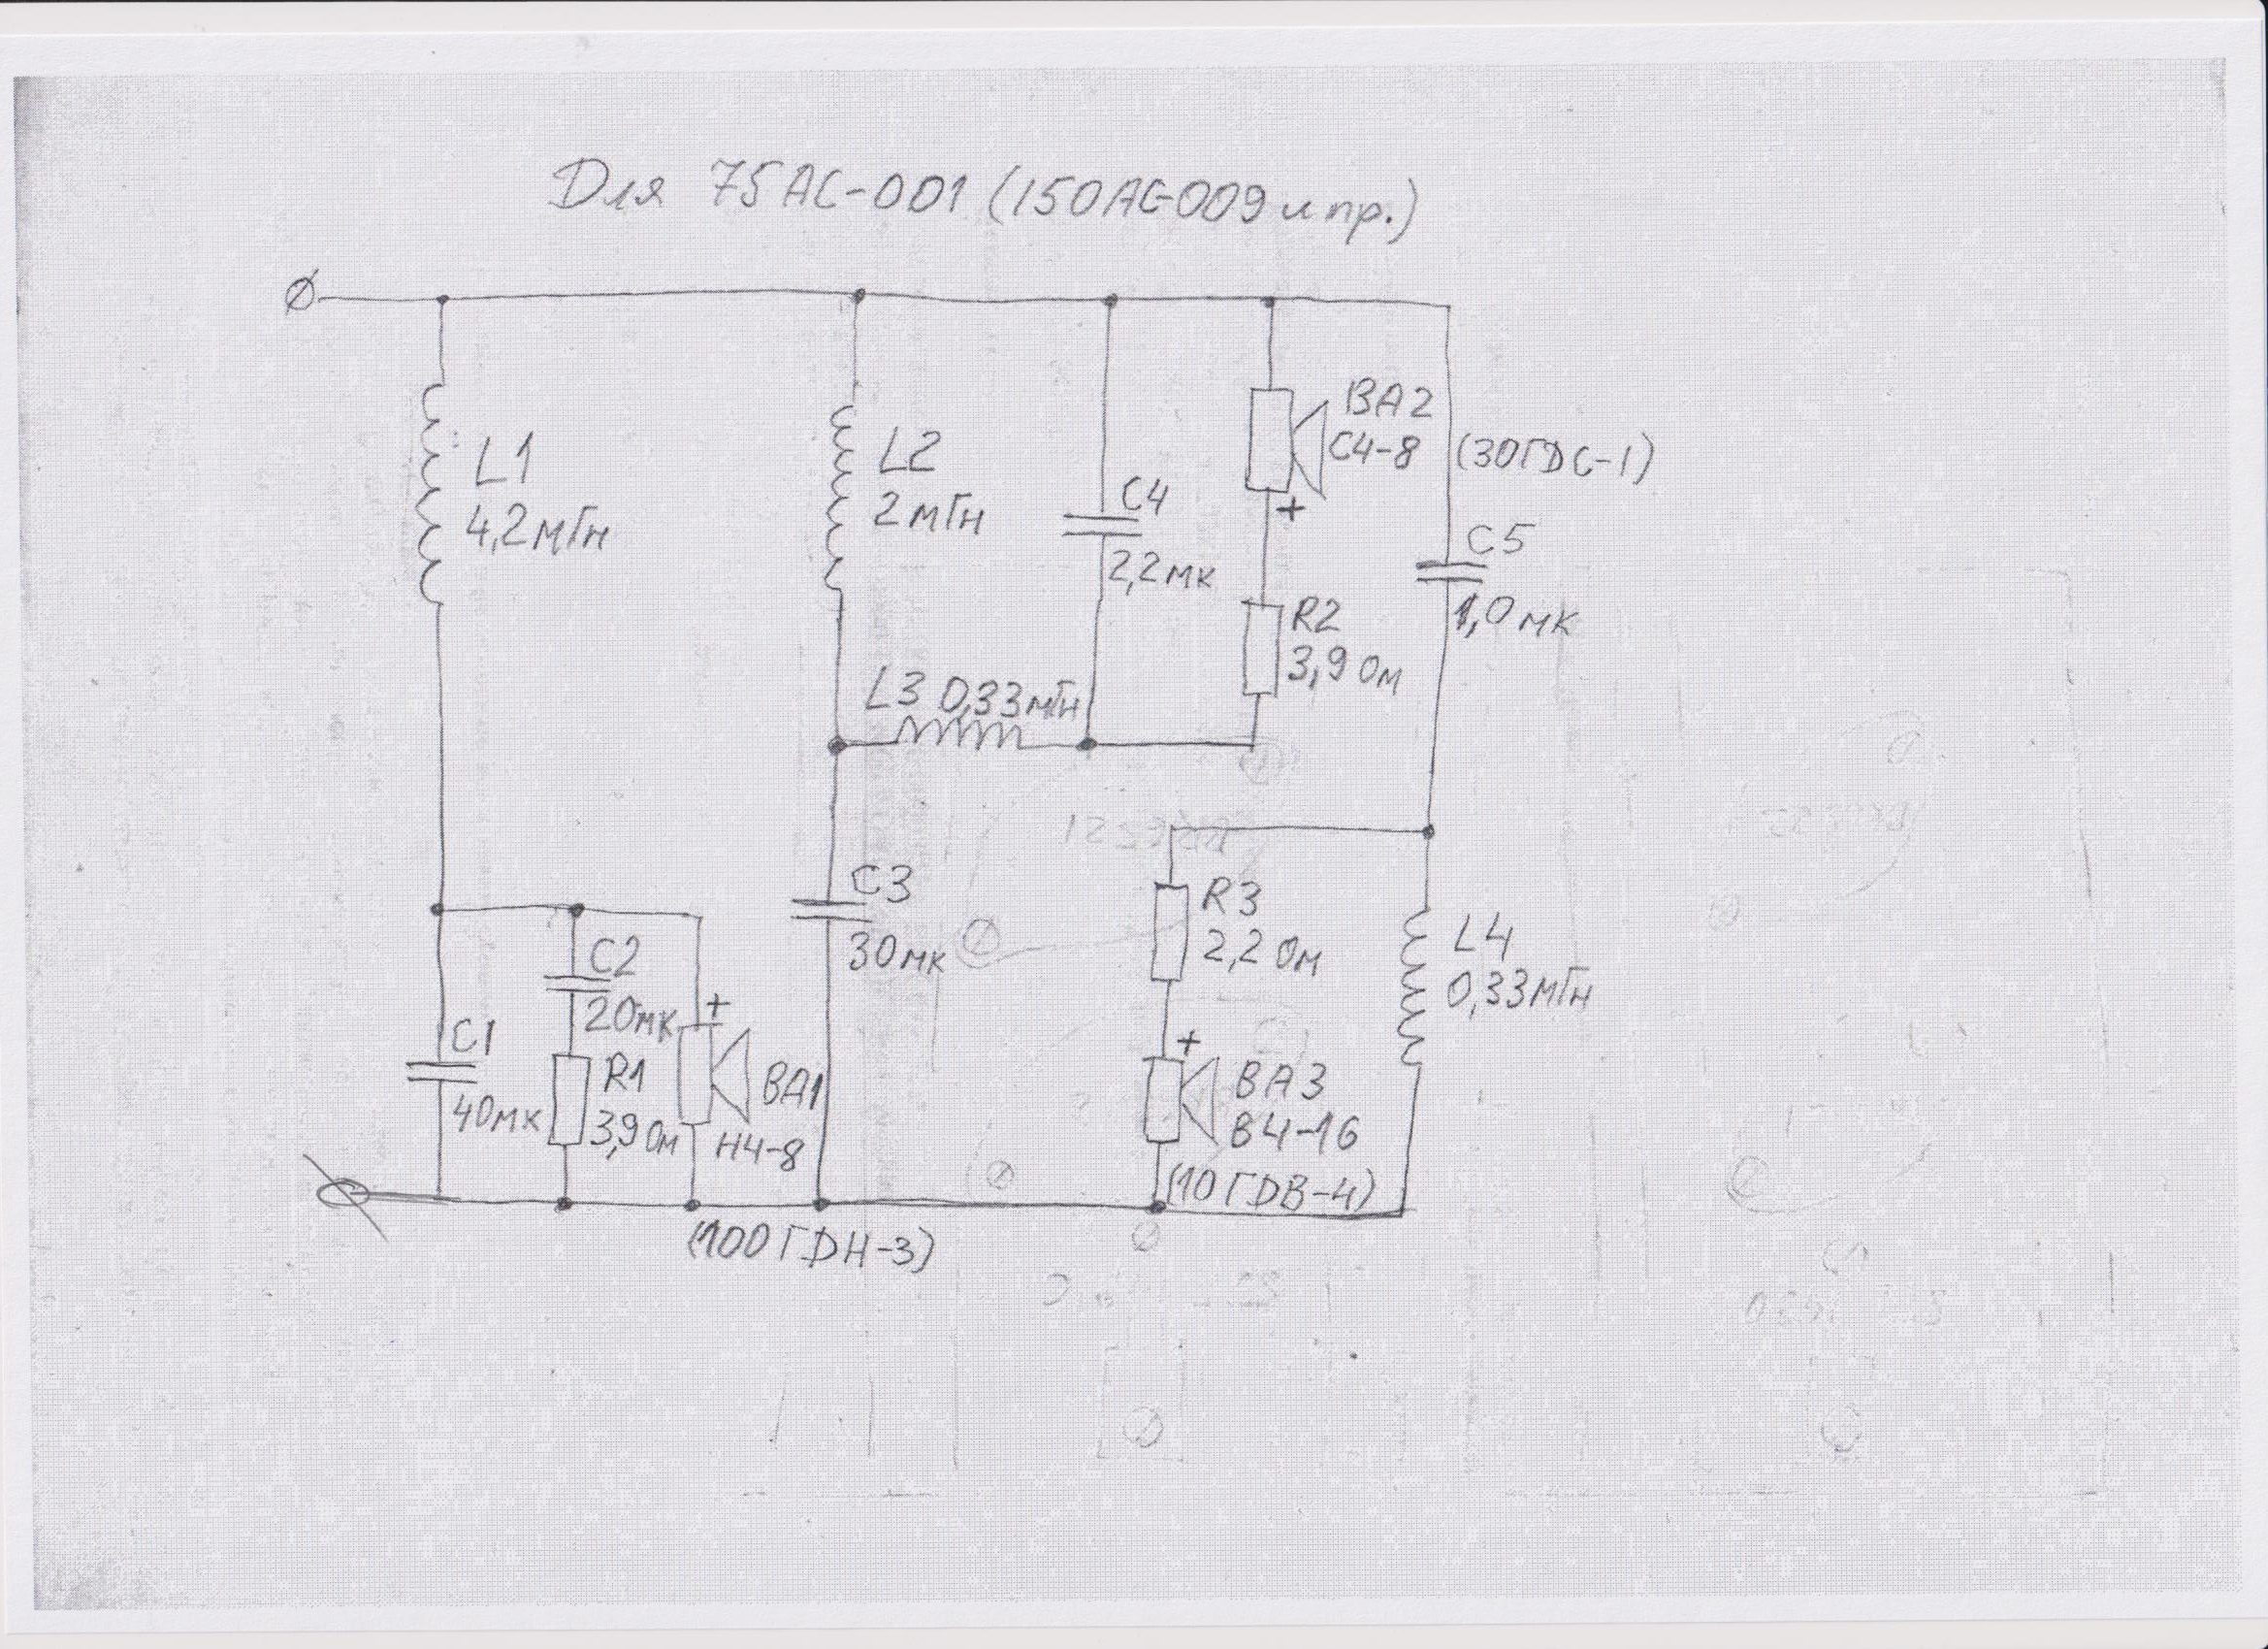 Для 75АС-001 (150АС-009 и пр.)
L1
4,2мГн
L2
2мГн
C4
2,2мк
BA2
СЧ-8 (30ГДС-1)
+
C5
1,0мк
R2
3,9 Ом
L3 0,33мГн
C3
30мк
R3
2,2 Ом
L4
0,33мГн
C2
20мк
+
C1
40мк
R1
3,9 Ом
BA1
НЧ-8
(100ГДН-3)
+
BA3
ВЧ-16
(10ГДВ-4)